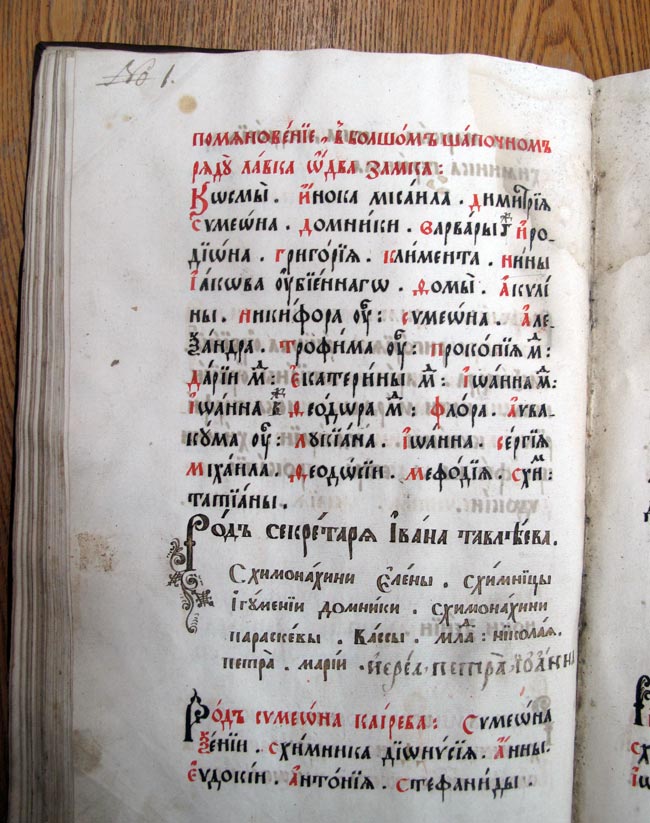 No 1.
помѧновенїе, в̾ болшомъ шапочномъ
рѧдꙋ̀ ла́вка ѿ два замка:
Кѡсмы̀ . и́нока мїсаила . димитрїѧ
сѷмеѡ́на . домни́ки . варва́ры и҆ро-
дїѡ́на . григо́рїѧ . кли́мента . ни́ны
і҆а́кѡва ᲂу҆бїе́ннагѡ . до́мы . а҆кѹлі
ны . ники́фора ᲂу҆: сѷмеѡ́на . а҆ле
ѯа́ндра . трофи́ма ᲂу҆: проко́пїѧ м҃:
да́рїи м҃: є҆катери́ны м҃: і҆ѡа́нна м҃:
і҆ѡа́нна ѳео́дѡра м҃: фло́ра . а҆вва
кꙋ́ма ᲂу҆: лꙋкїа́на . і҆ѡа́нна . се́ргїѧ
мїха́ила . ѳеодѡ́сїи . меѳо́дїѧ . схи҃м:
татїа́ны .
Ро́дъ секрета́рѧ І҆ва́на тавлѣ́ева.
Схимона́хини Є҆ле́ны . схи́мницы
і҆гꙋ́менїи домни́ки . схимона́хини
параске́вы . ва́ссы . млⷣа : никола́ѧ .
петра̀ . марі́и . іерея петра̀ їѡанна
Ро́дъ сѷмеѡ́на ка́ірева: Сѷмеѡ́на
ѯе́нїи . схи́мника дїѡнѵ́сїѧ . а҆́нны .
є҆ѵдокі́и . а҆нто́нїѧ . стефани́ды .